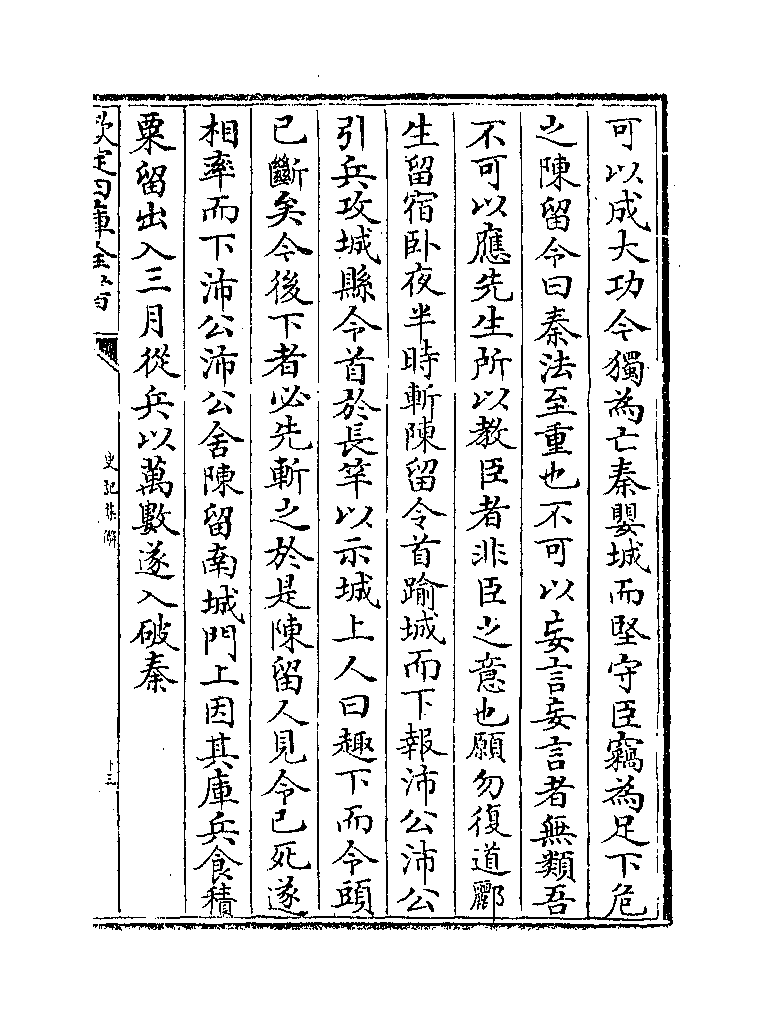 可以成大功今獨為亡秦嬰城而堅守臣竊為足下危
之陳留令曰秦法至重也不可以妄言妄言者無類吾
不可以應先生所以教臣者非臣之意也願勿復道酈
生留宿卧夜半時斬陳留令首踰城而下報沛公沛公
引兵攻城縣令首於長竿以示城上人曰趣下而令頭
已斷矣今後下者必先斬之於是陳留人見令已死遂
相率而下沛公沛公舍陳留南城門上因其庫兵食積
粟留出入三月從兵以萬數遂入破秦
欽定四庫全書
史記集解
十三